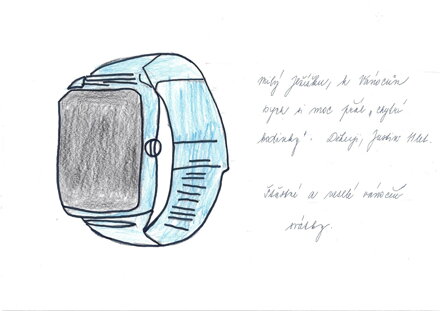 milý Ježíšku, k Vánocům
bych si moc přál „chytré
hodinky". Děkuji, Justin 11 let.
Šťastné a veselé vánoční
svátky.